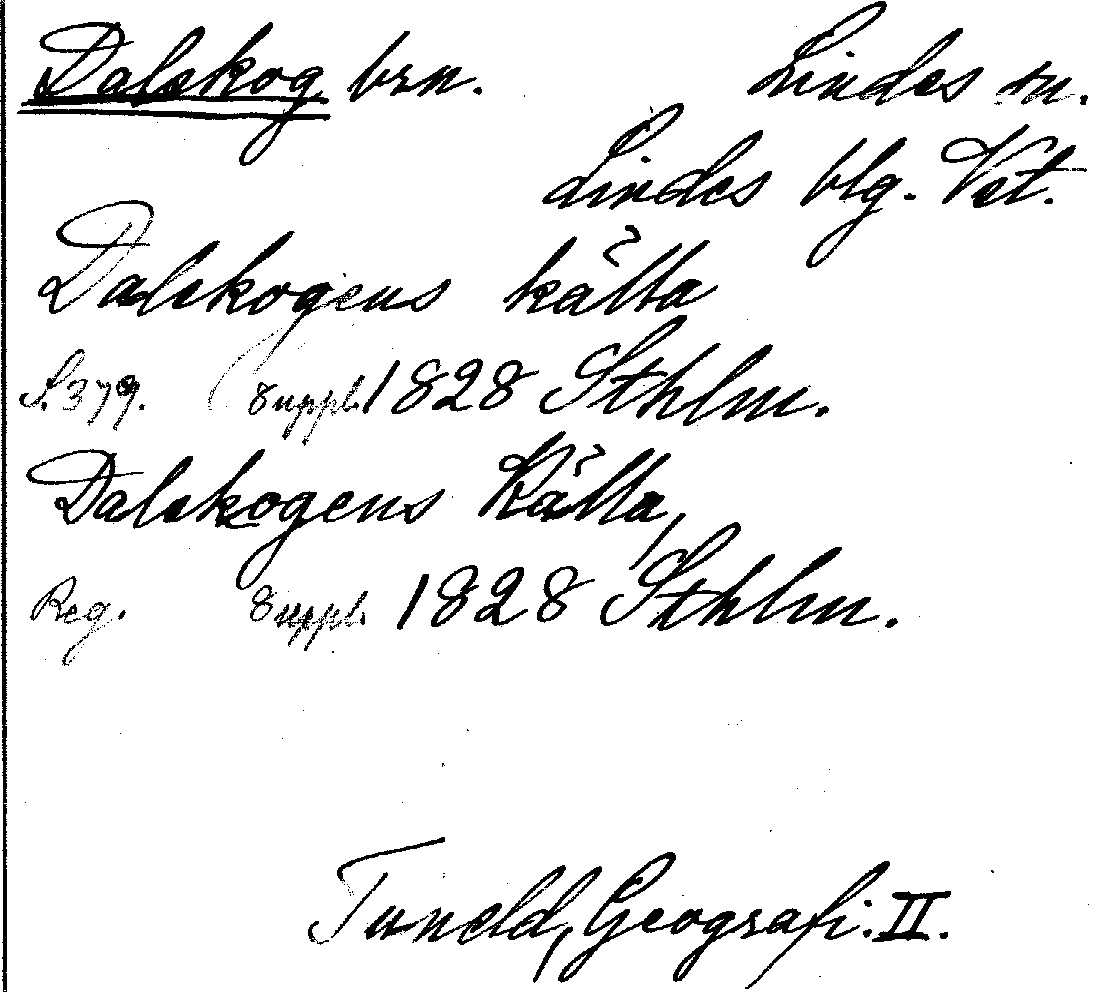 Dalskog brn. Lindes sn.
Lindes blg. Vst.
Dalskogens källa
S. 379. Suppl. 1828 Sthlm.
Dalskogens Källa,
Reg. Suppl. 1828 Sthlm.
Tuneld, Geografi. II.